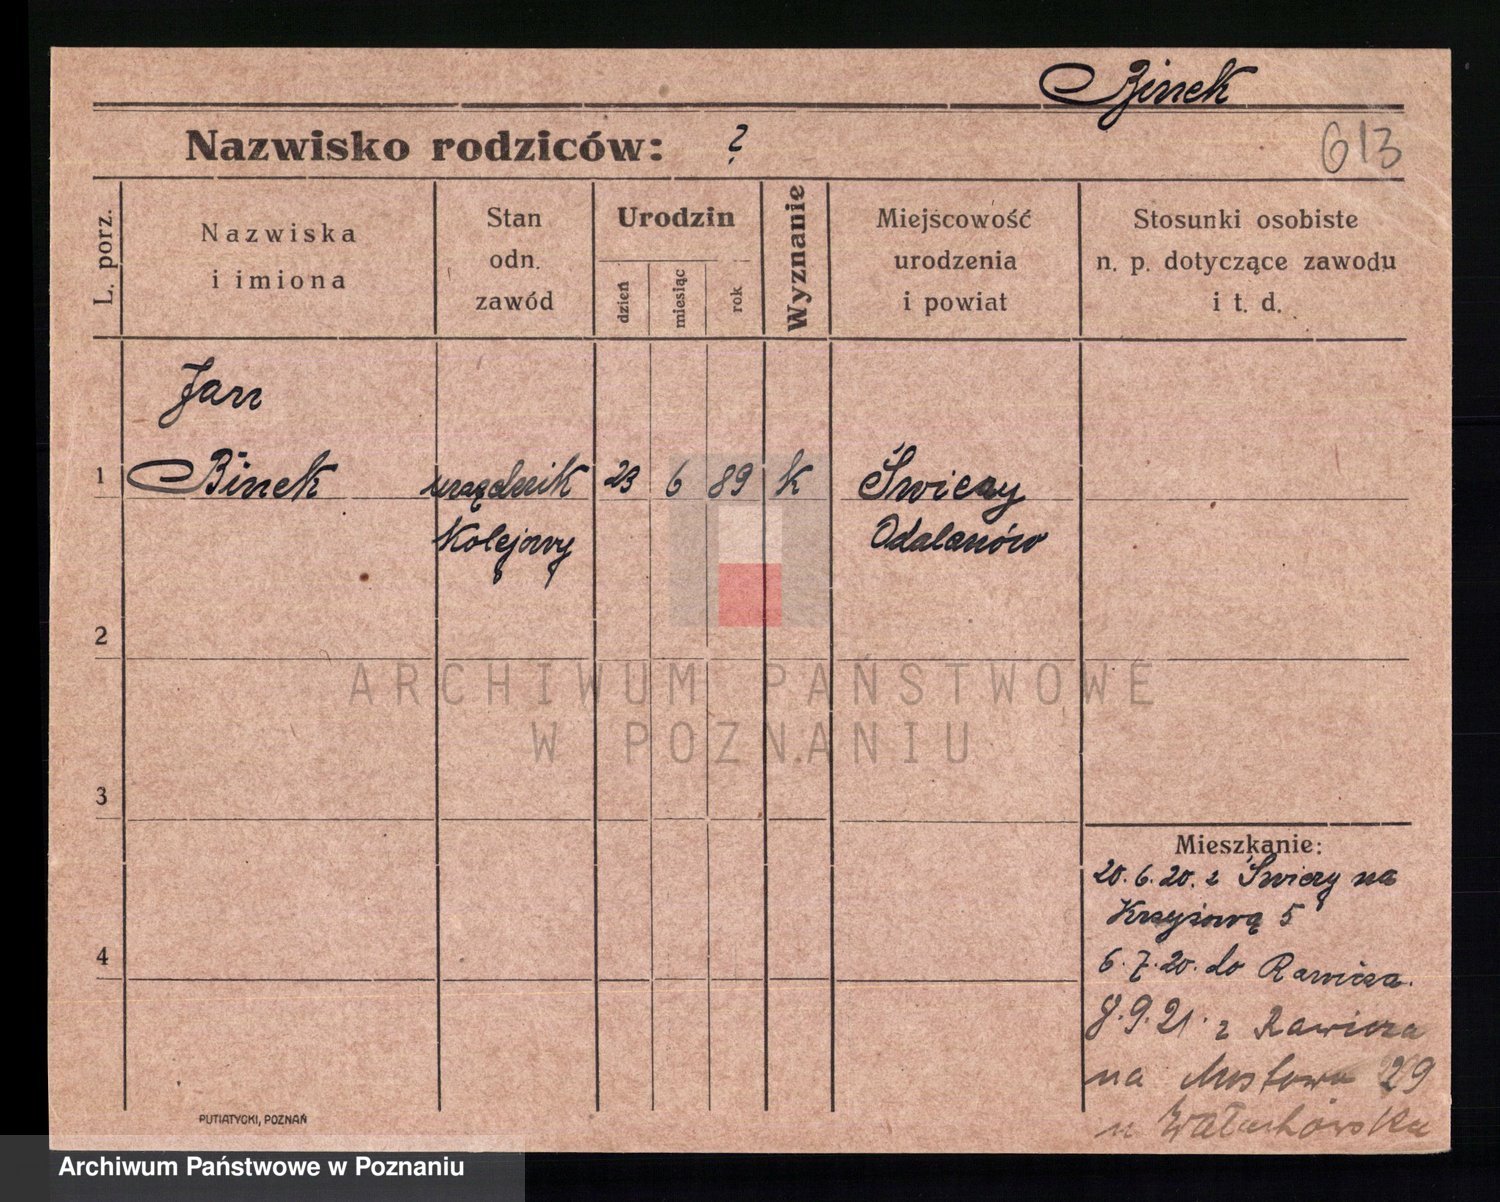 Binek
Nazwisko rodziców: ?
613
L. porz.
Nazwiska
i imiona
Stan
odn.
zawód
Urodzin
dzień
miesiąc
rok
Wyznanie
Miejscowość
urodzenia
i powiat
Stosunki osobiste
n. p. dotyczące zawodu
i t. d.
Jan
1 Binek urzędnik 23 6 89 K Świecy
Kolejowy Odalanów
2
3
4
Mieszkanie:
20.6.20. z Świecy na
Krzyżową 5
6.7.20. do Rawicza.
8.9.21. z Rawicza
na Mostowa 29
u Wałachowska
PUTIATYCKI, POZNAŃ
ARCHIWUM PAŃSTWOWE
W POZNANIU
Archiwum Państwowe w Poznaniu